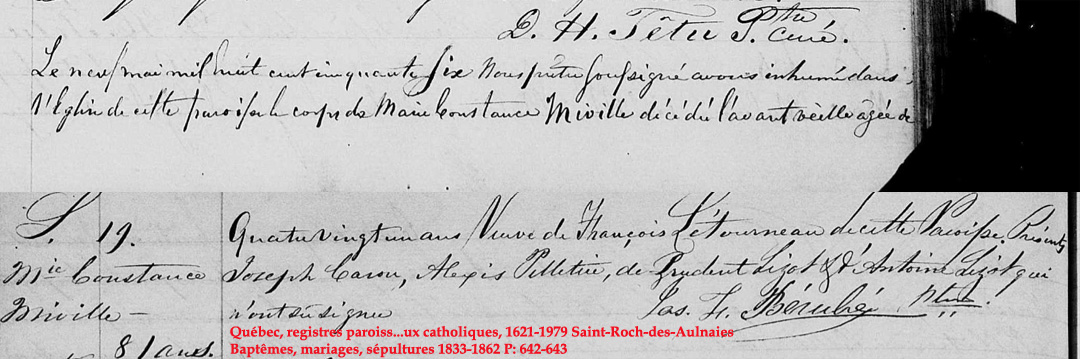 D. H. Têtu Ptre Curé.
Le neuf mai mil huit cent cinquante six Nous prêtre soussigné avons inhumé dans
l'Eglise de cette paroisse le corps de Marie Constance Miville décédée l'avant veille âgée de
S. 19.
Mie Constance
Miville —
81 ans.
Quatrevingt un ans Veuve de François Létourneau de cette Paroisse. Présents
Joseph Caron, Alexis Pelletier, de Prudent Lizot & d'Antoine Lizot qui
n'ont su signer
Jos. H. Bérubé Ptre.
Québec, registres paroiss...ux catholiques, 1621-1979 Saint-Roch-des-Aulnaies
Baptêmes, mariages, sépultures 1833-1862 P: 642-643